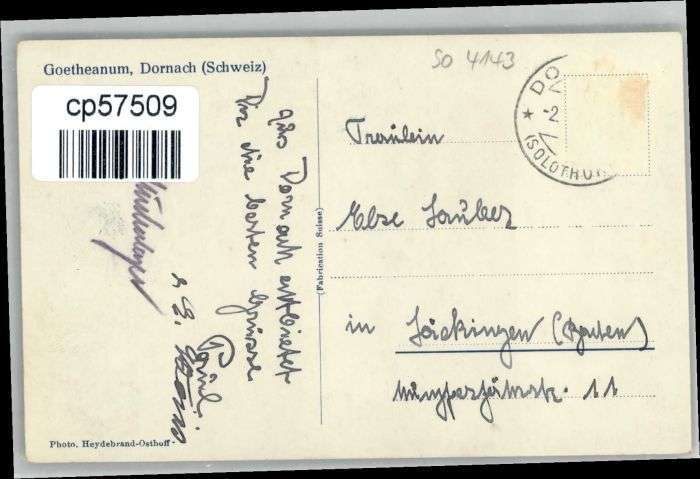 Goetheanum, Dornach (Schweiz)
cp57509
SO 4143
DO
* -2
(SOLOTHUR
Aus Dornach entbietet
Dir die besten Grüsse
Paul
(Fabrication Suisse)
Fräulein
Else Sauber
in Säckingen (Baden)
11
Photo. Heydebrand-Osthoff